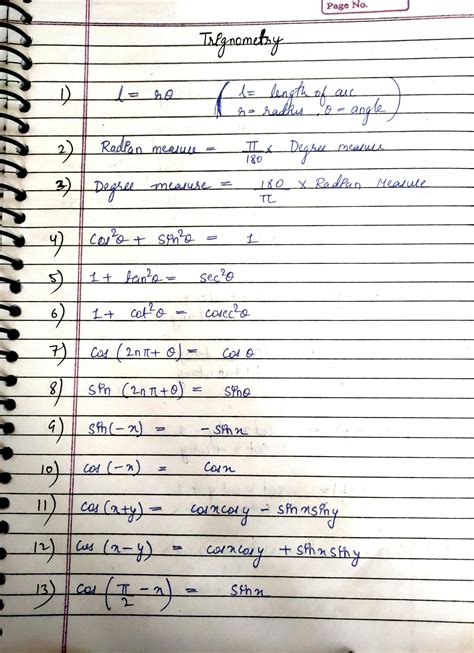 Page No.
Trignometry
1) l = rθ ( l = length of arc
r = radius, θ = angle )
2) Radian measure = π/180 × Degree measure
3) Degree measure = 180/π × Radian Measure
4) cos²θ + sin²θ = 1
5) 1 + tan²θ = sec²θ
6) 1 + cot²θ = cosec²θ
7) cos (2nπ + θ) = cos θ
8) sin (2nπ + θ) = sinθ
9) sin(-x) = -sinx
10) cos (-x) = cosx
11) cos (x+y) = cosxcosy - sinxsiny
12) cos (x-y) = cosxcosy + sinxsiny
13) cos (π/2 - x) = sinx